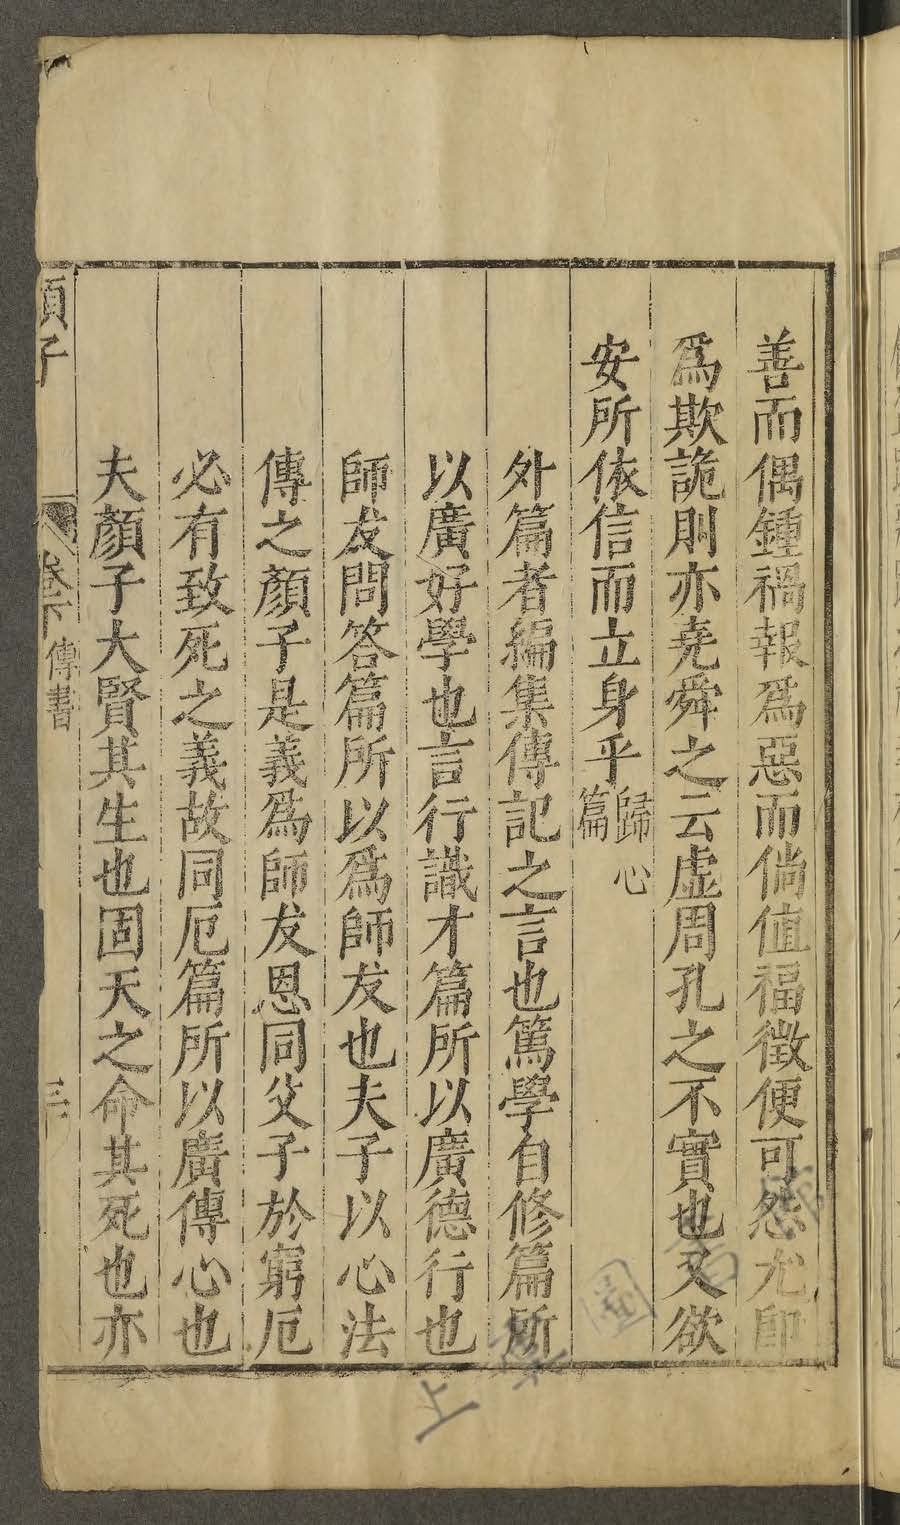 善而偶鍾禍報爲惡而倘值福徵便可怨尤即
爲欺詭則亦尭舜之云虚周孔之不實也又欲
安所依信而立身乎歸心篇
外篇者編集傳記之言也篤學自修篇所
以廣好學也言行識才篇所以廣德行也
師友問答篇所以爲師友也夫子以心法
傳之顏子是義爲師友恩同父子於窮厄
必有致死之義故同厄篇所以廣傳心也
夫顏子大賢其生也固天之命其死也亦
子
卷下 傳書